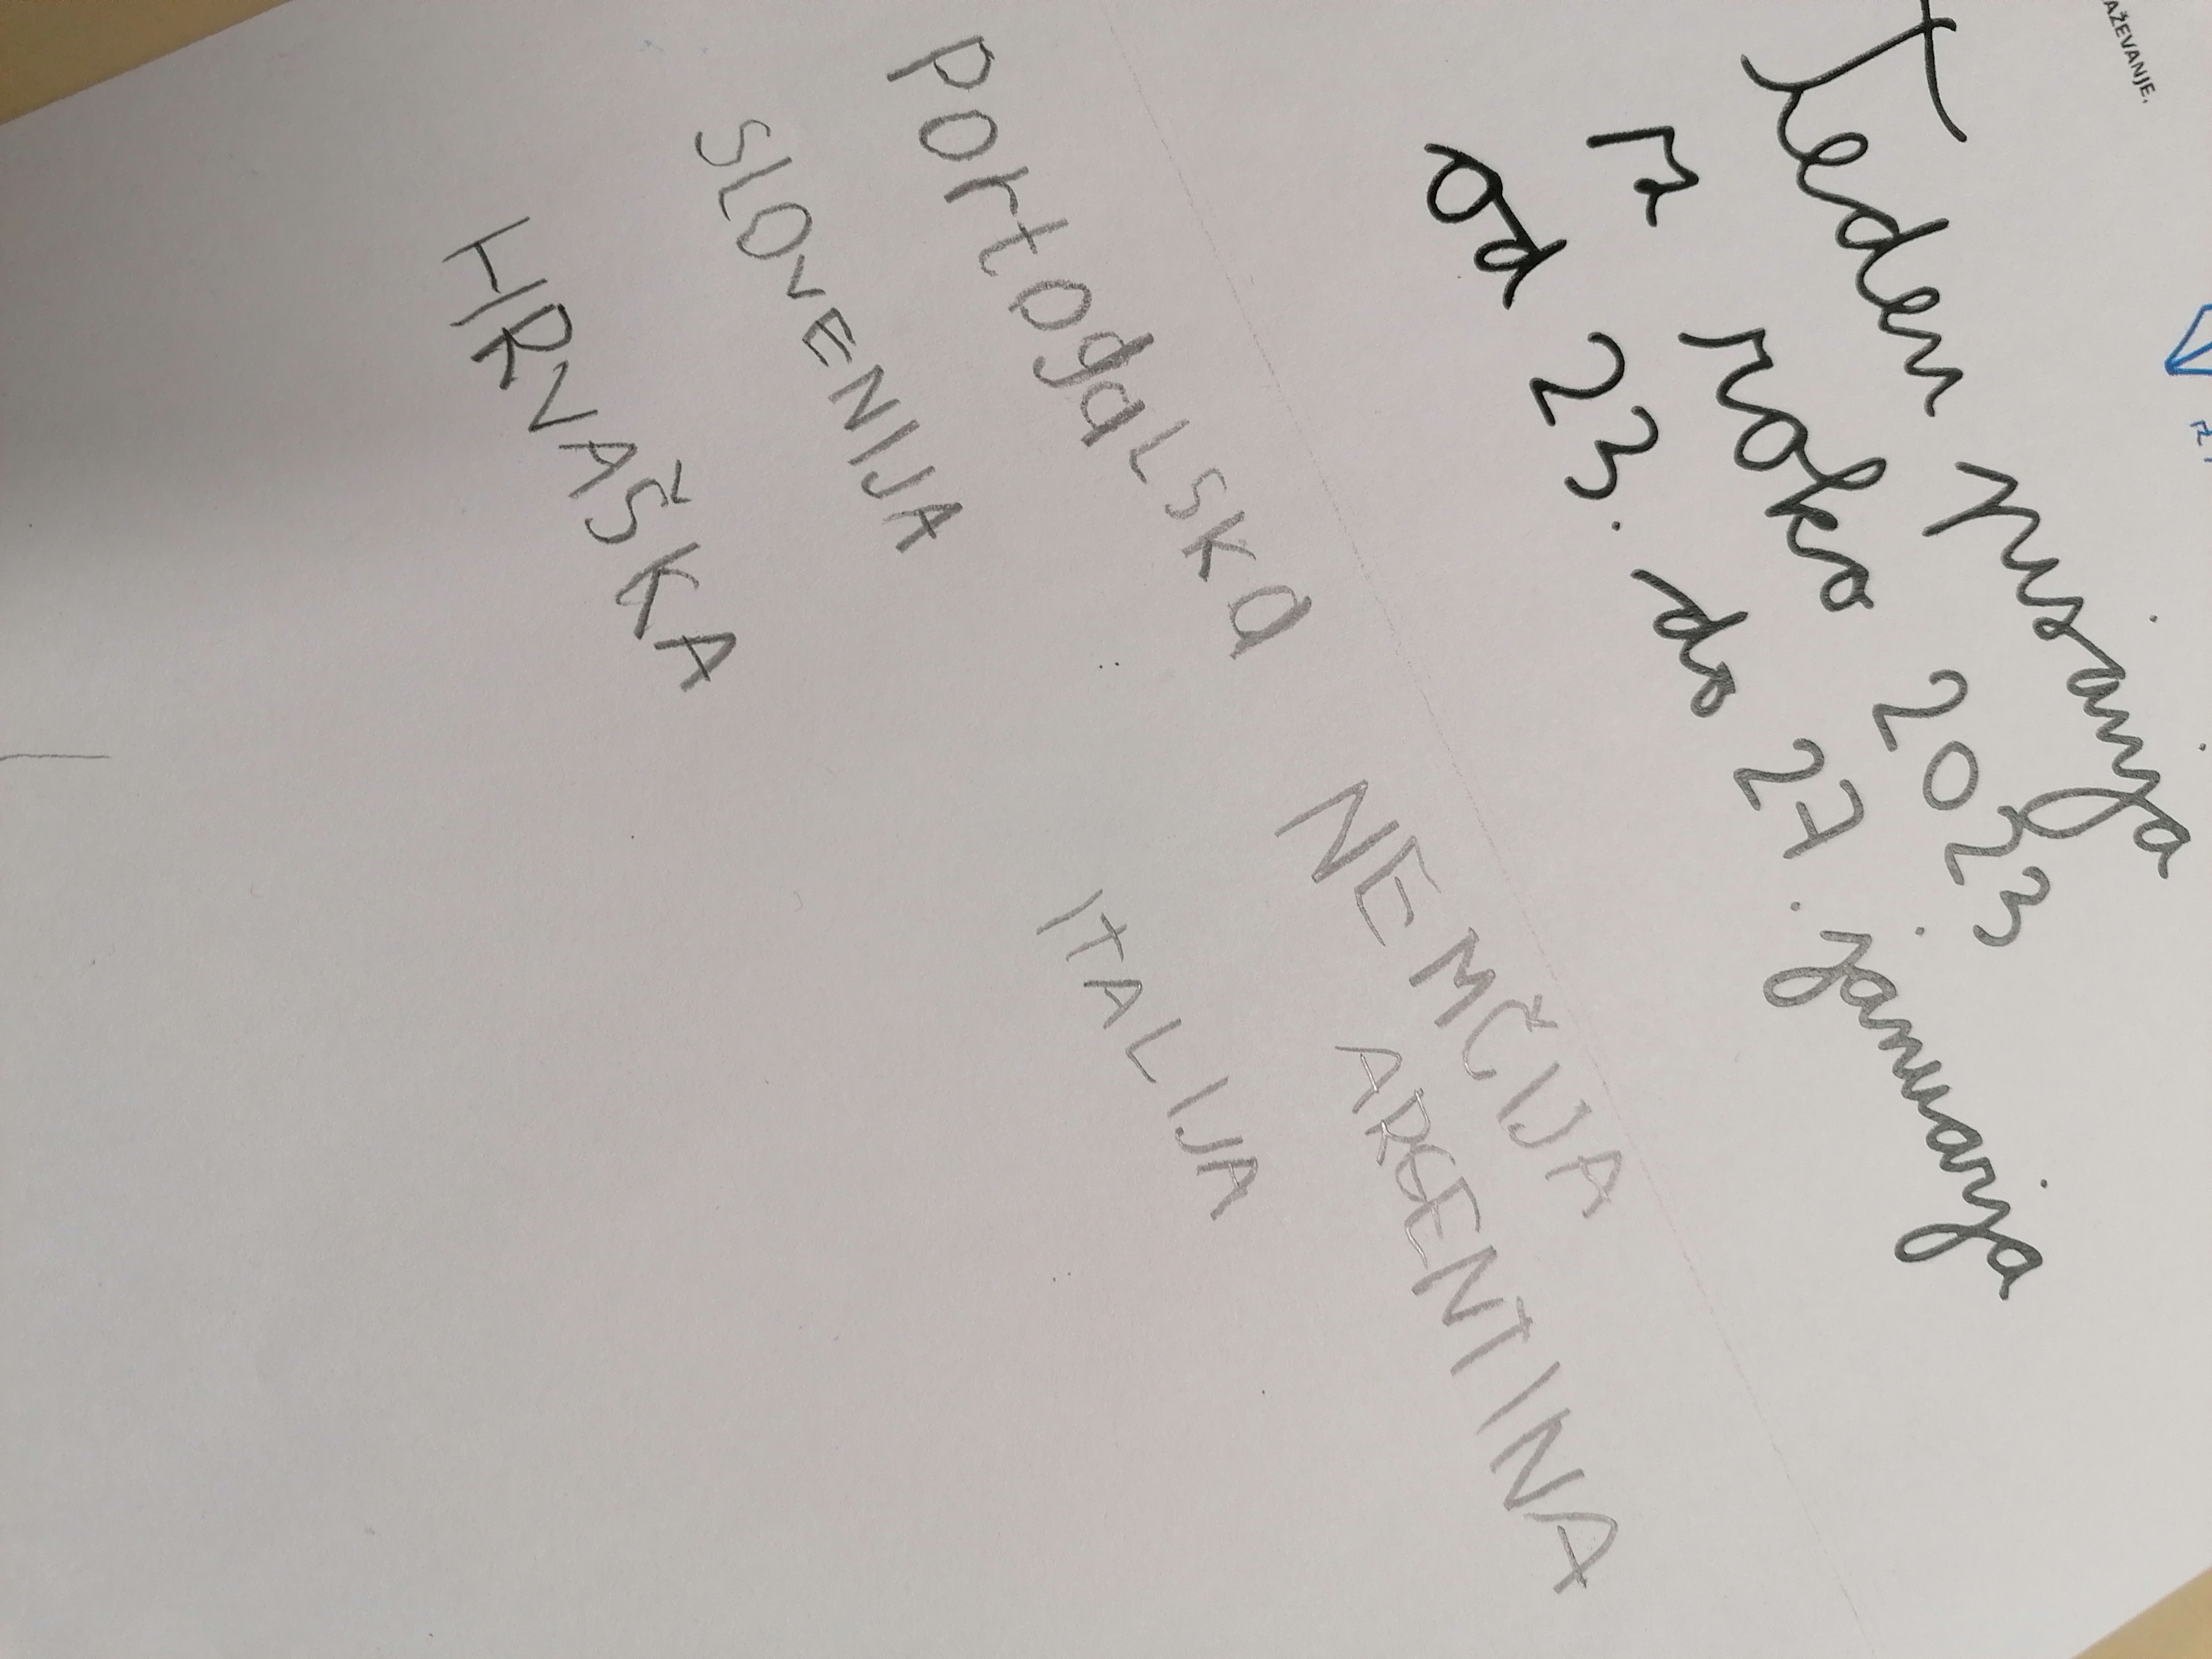 AŽEVANJE.
Teden pisanja
z roko 2023
od 23. do 27. januarja
Portogalska NEMČIJA
SLOVENIJA ARGENTINA
HRVAŠKA ITALIJA